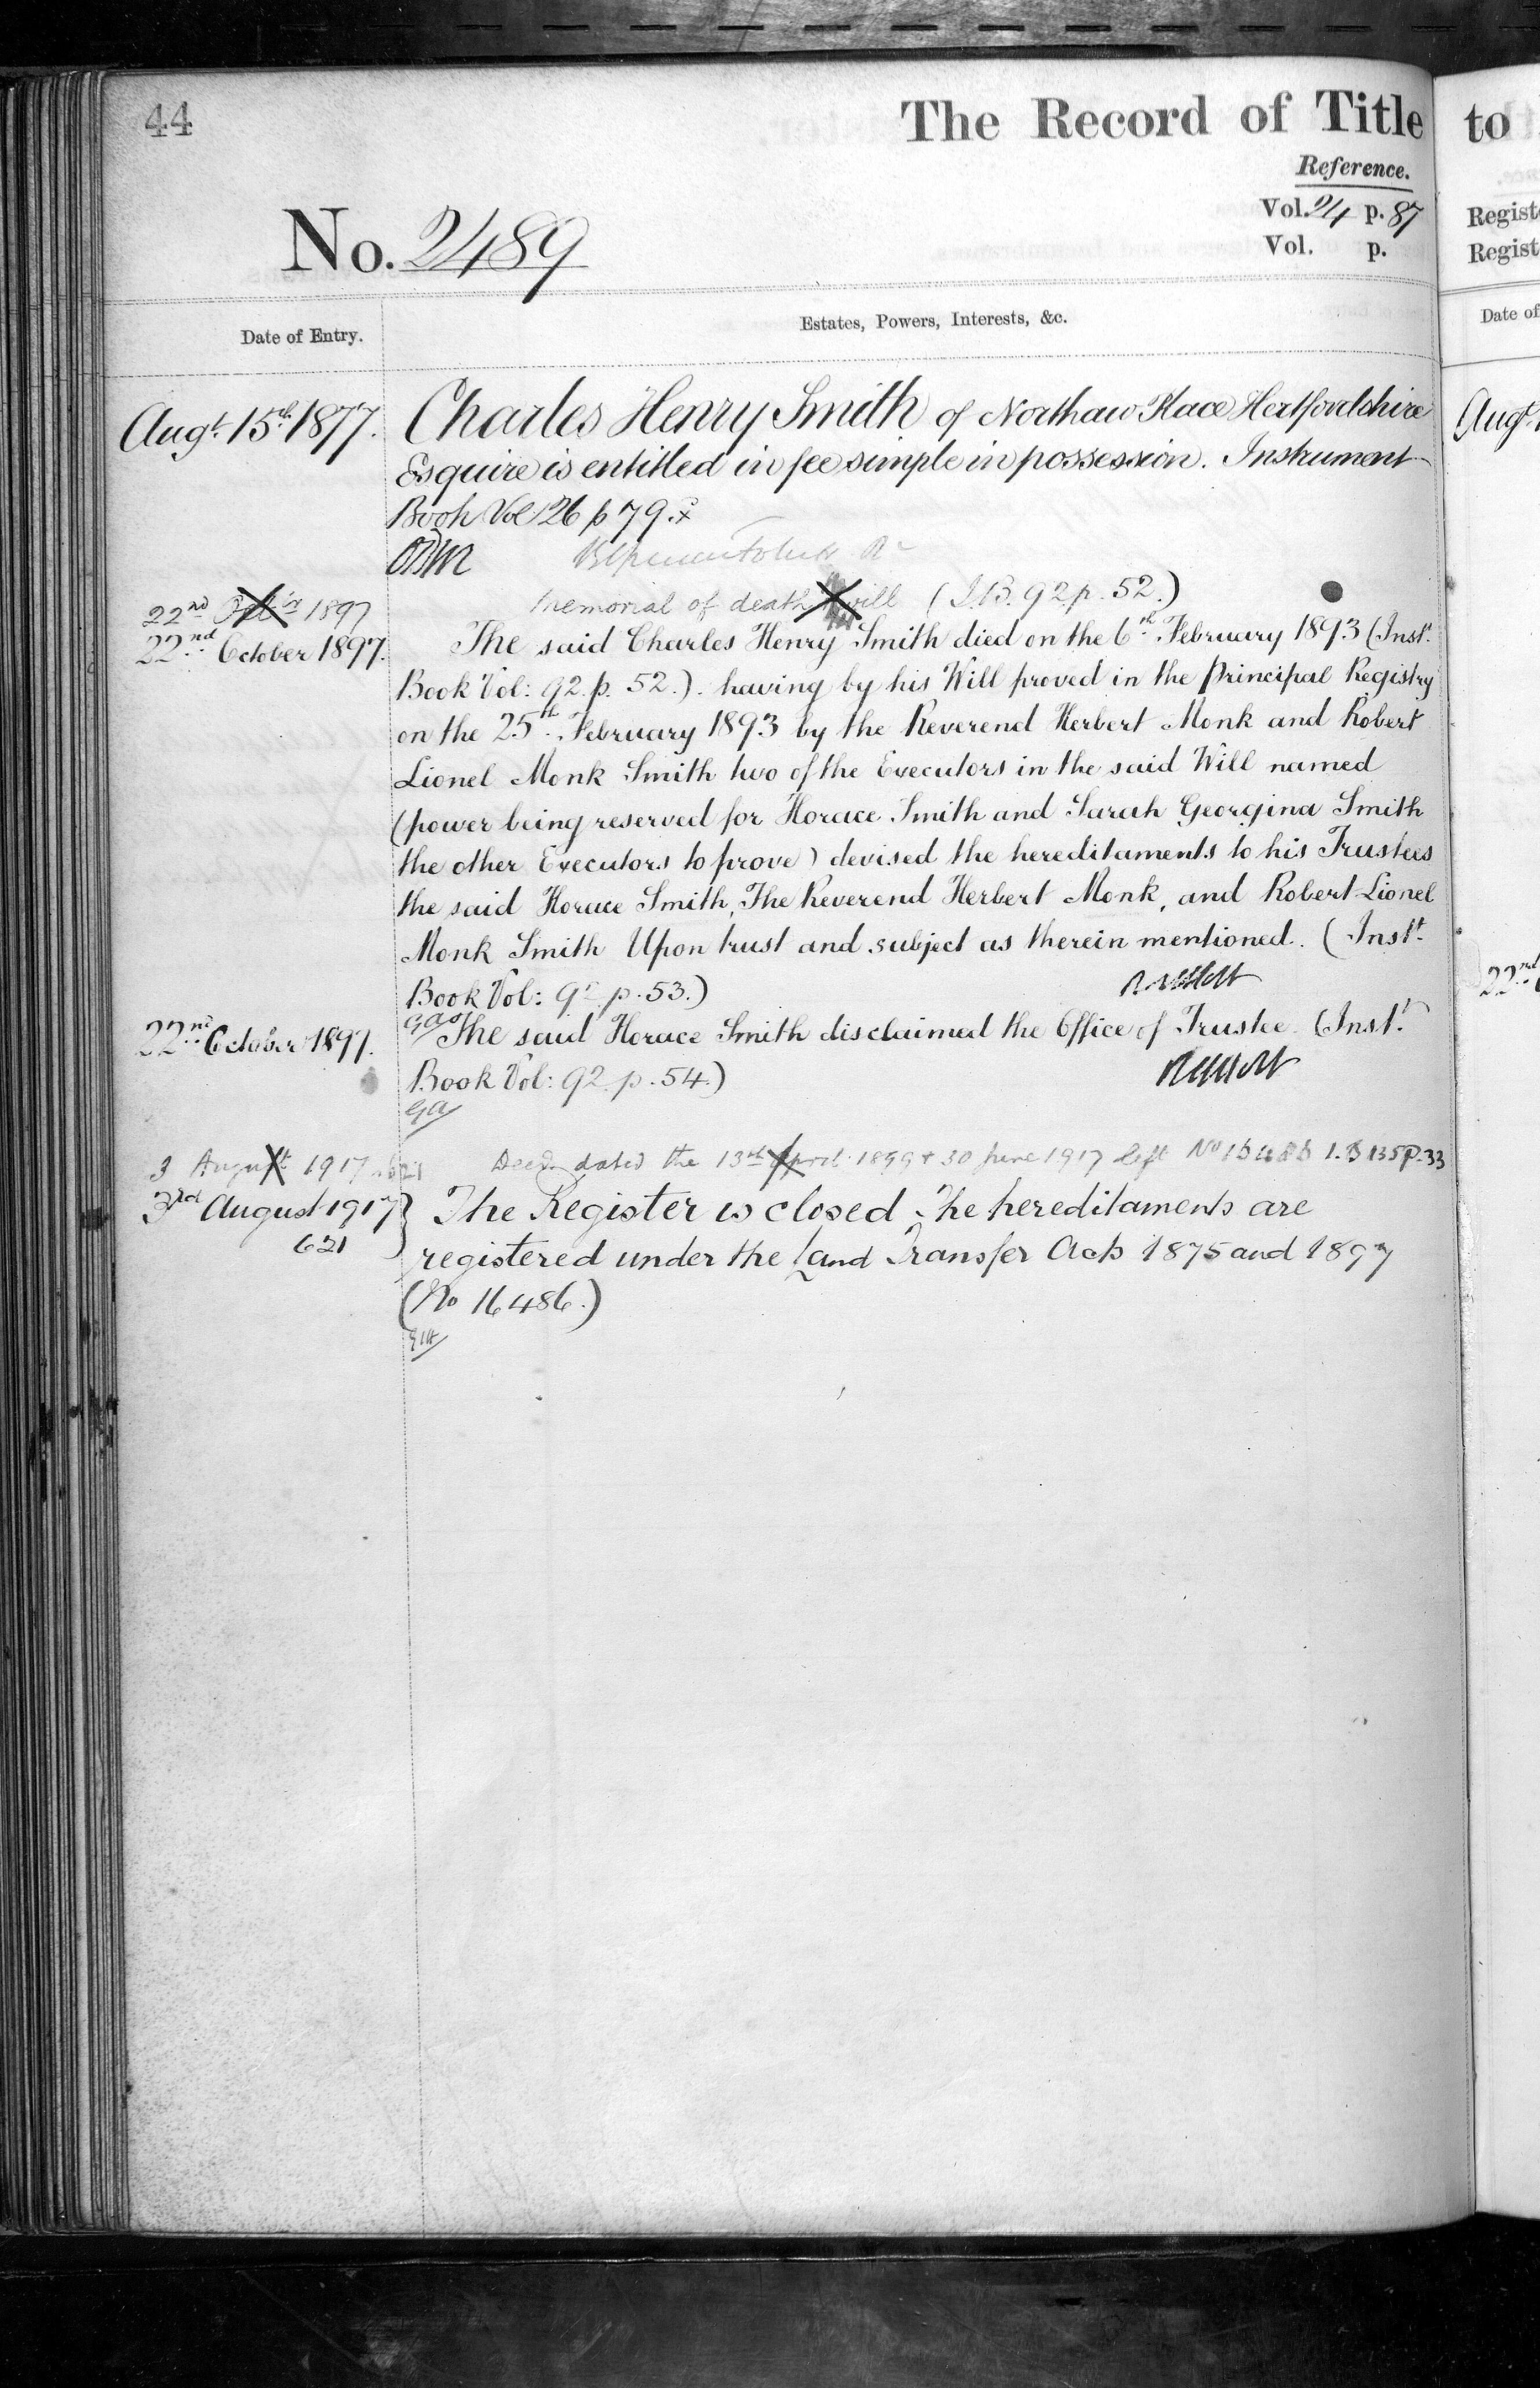 44
The Record of Title to
Reference.
Vol. 24 p. 87
Vol. p.
Regist
Regist
No. 2489
Date of Entry.
Estates, Powers, Interests, &c.
Date of
Augt. 15th 1877.
Charles Henry Smith of Northaw Place Hertfordshire
Esquire is entitled in fee simple in possession. Instrument
Book Vol 26 p 79.
22nd 1897
Memorial of death will (I.B. 92. p. 52.)
22nd October 1897.
The said Charles Henry Smith died on the 6th February 1893 (Inst.
Book Vol: 92. p. 52.). having by his Will proved in the Principal Registry
on the 25th February 1893 by the Reverend Herbert Monk and Robert
Lionel Monk Smith two of the Executors in the said Will named
(power being reserved for Horace Smith and Sarah Georgina Smith
the other Executors to prove) devised the hereditaments to his Trustees
the said Horace Smith, The Reverend Herbert Monk, and Robert Lionel
Monk Smith Upon trust and subject as therein mentioned. (Instt.
Book Vol: 92 p. 53.)
22nd October 1897.
The said Horace Smith disclaimed the Office of Trustee. (Instt.
Book Vol: 92. p. 54.)
3 August 1917
Deeds dated the 13th April 1899 & 30 June 1917 left No 16486 I.B 135 P. 33
3rd August 1917
621
The Register is closed. The hereditaments are
registered under the Land Transfer Acts 1875 and 1897
(No 16486.)
Augt
22nd